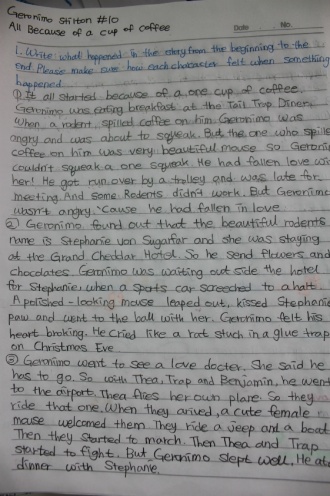 Geronimo Stilton #10
All Because of a cup of coffee
Date No.
1. Write what happened in the story from the beginning to the
end. Please make sure how each character felt when something
happened
① It all started because of a one cup of coffee.
Geronimo was eating breakfast at the Tail Trap Diner,
when a rodent spilled coffee on him. Geronimo was
angry and was about to squeak. But the one who spills
coffee on him was very beautiful mouse so Geroni
couldn't squeak a one squeak. He had fallen love wi
her! He got run over by a trolley and was late for
meeting. And some Redents didn't work. But Geronimo
wasn't angry. 'Cause he had fallen in love
② Geronimo found out that the beautiful rodents
name is Stephanie von Sugarfur and she was staying
at the Grand Cheddar Hotel. So he send flowers and
chocolates. Geronimo was waiting out side the hotel
for Stephanie, when a sports car screeched to a halt.
A polished-looking mouse leaped out, kissed Stephanie
paw and went to the ball with her. Geronimo felt his
heart broking. He Cried like a rat stuck in a glue trap
on Christmas Eve
③ Geronimo went to see a love docter. She said he
has to go. So with Thea, Trap and Benjamin, he went
to the airport. Thea flies her own plane. So they
ride that one. When they arived, a cute female
mouse welcomed them. They ride a jeep and a boat
Then they started to march. Then Thea and Trap
started to fight. But Geronimo slept well. He ate
dinner with Stephanie.